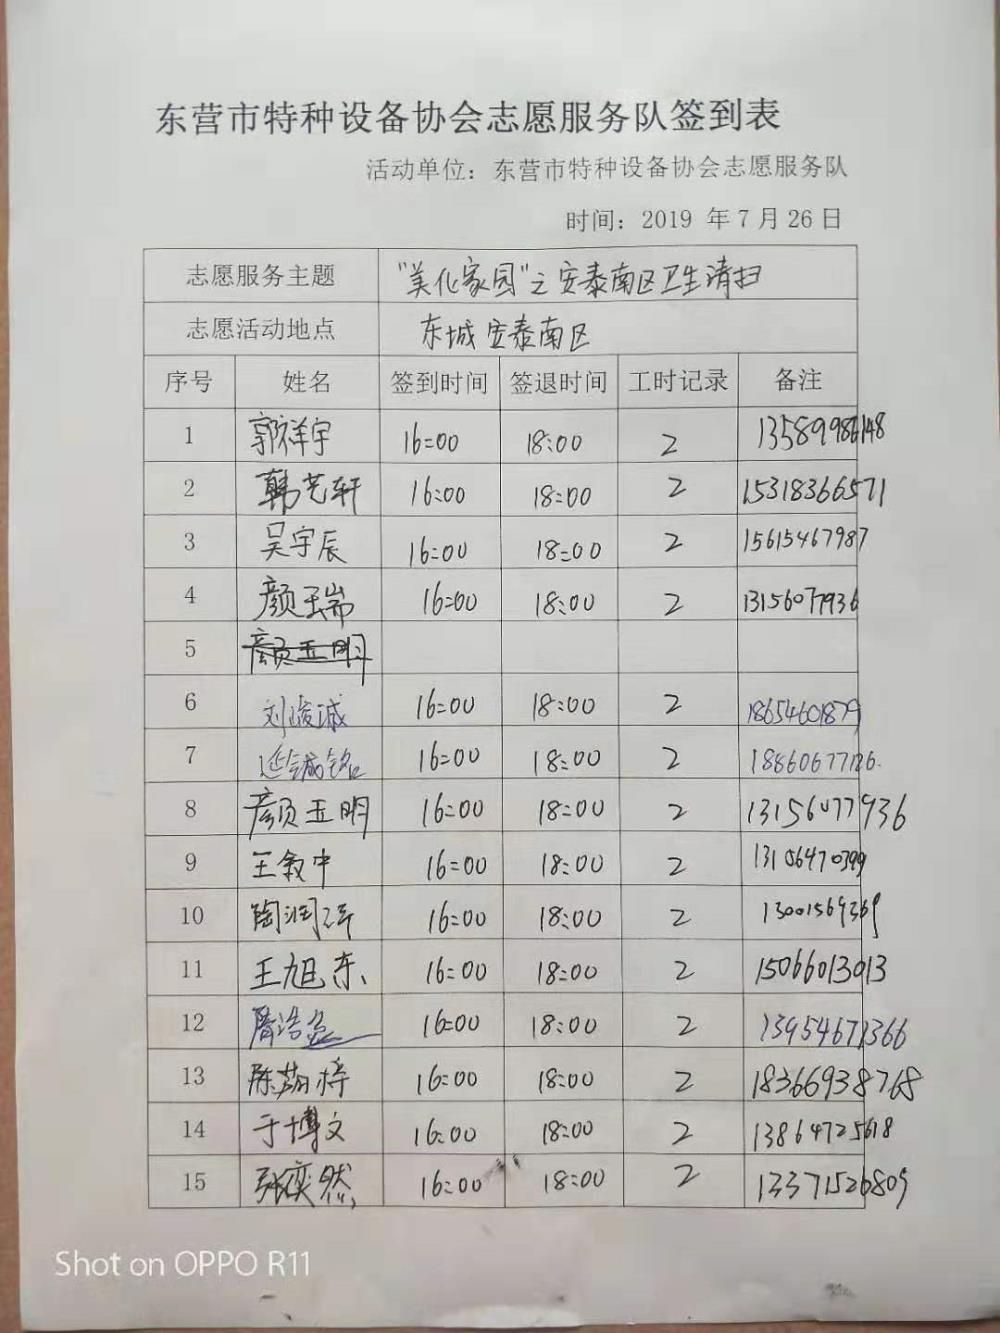 东营市特种设备协会志愿服务队签到表
活动单位：东营市特种设备协会志愿服务队
时间：2019 年 7 月 26 日
志愿服务主题 "美化家园"之安泰南区卫生清扫
志愿活动地点 东城安泰南区
序号 姓名 签到时间 签退时间 工时记录 备注
1 郭祥宇 16:00 18:00 2 13589986148
2 韩艺轩 16:00 18:00 2 15318366571
3 吴宇辰 16:00 18:00 2 15615467987
4 颜玉瑞 16:00 18:00 2 13156077936
5 颜玉明
6 刘峻诚 16:00 18:00 2 18654601879
7 16:00 18:00 2 18860677126
8 颜玉明 16:00 18:00 2 13156077936
9 王叙中 16:00 18:00 2 13106470399
10 16:00 18:00 2 13001569369
11 王旭东 16:00 18:00 2 15066013013
12 16:00 18:00 2 13954671366
13 16:00 18:00 2 18366938768
14 于博文 16:00 18:00 2 13864725618
15 张奕然 16:00 18:00 2 13371526809
Shot on OPPO R11